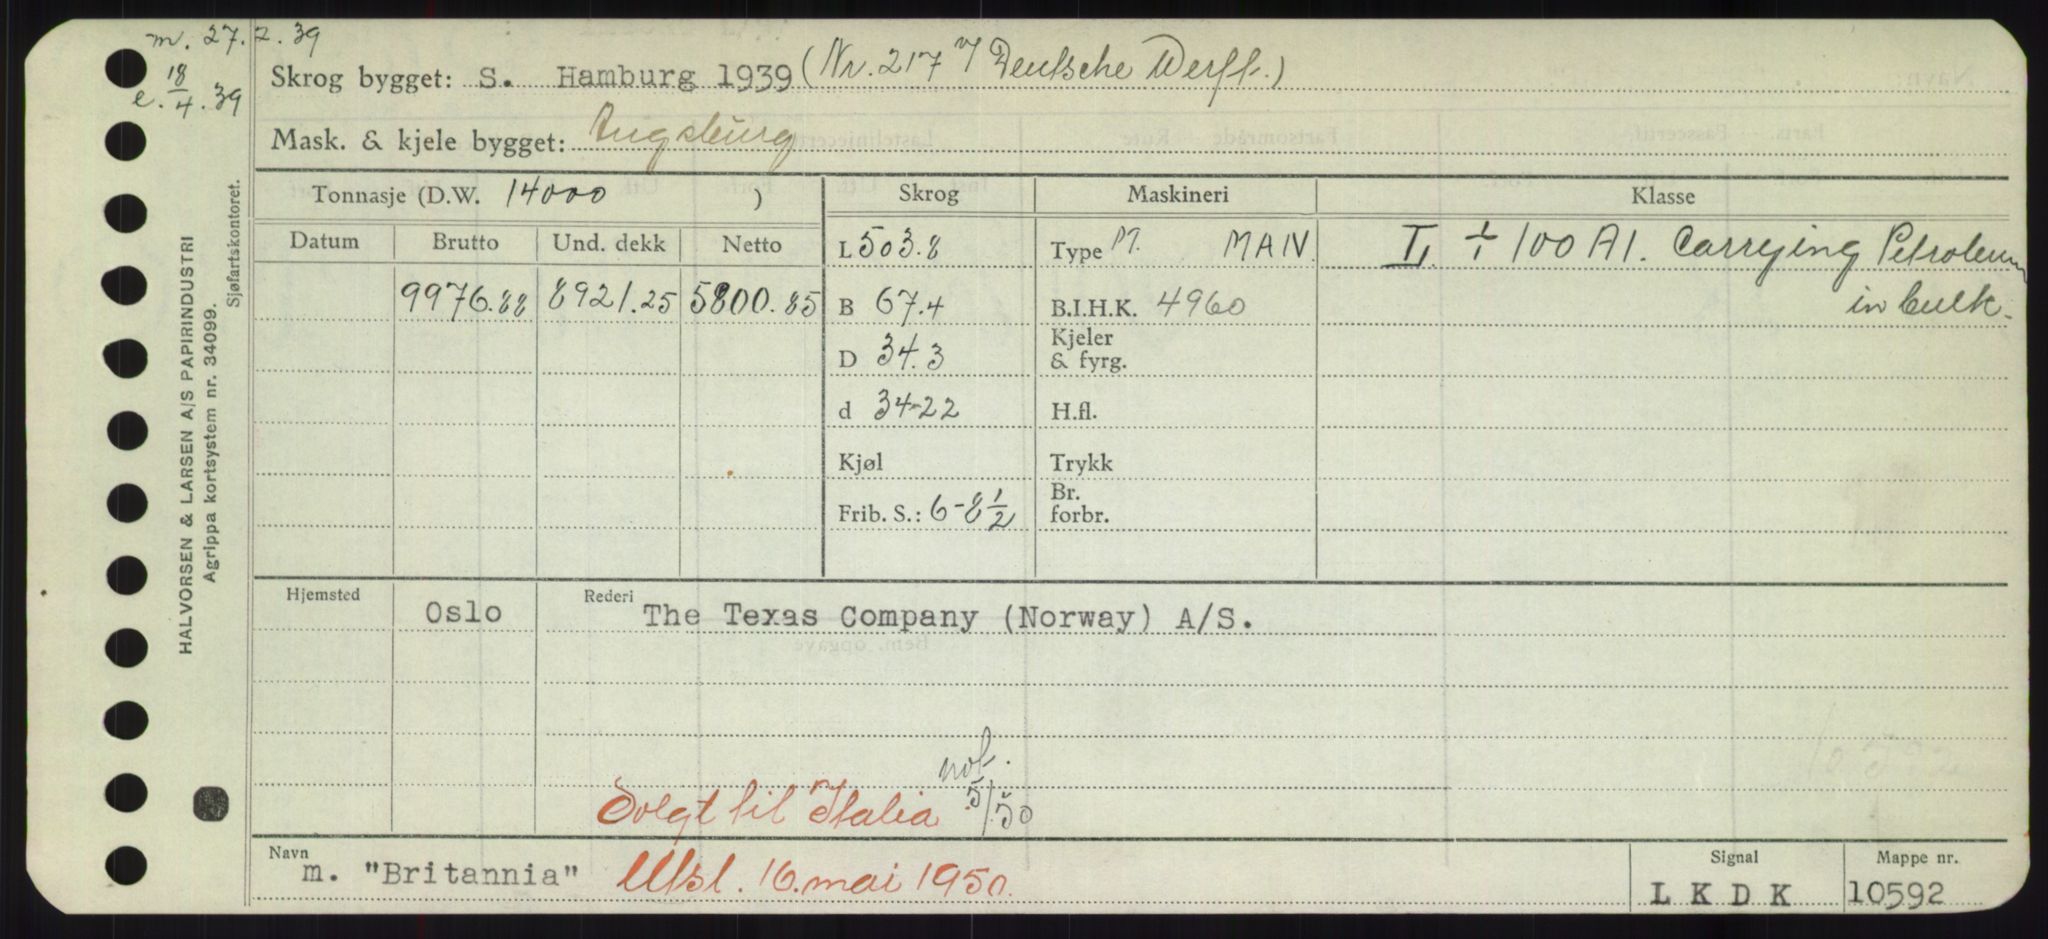 m. 27.2.39
e. 18/4.39
Skrog bygget: S. Hamburg 1939 (Nr. 217 v/ Deutsche Werft.)
Mask. & kjele bygget: Augsburg
Tonnasje (D.W. 14000 ) Skrog Maskineri Klasse
Datum Brutto Und. dekk Netto
L 503.8 Type M. MAN. I. ∻ 100 A1. Carrying Petroleum
in bulk.
9976.88 8921.25 5800.85 B 67.4 B.I.H.K. 4960
D 34.3 Kjeler & fyrg.
d 34-22 H.fl.
Kjøl Trykk
Frib. S.: 6-8 1/2 Br. forbr.
Hjemsted Oslo Rederi The Texas Company (Norway) A/S.
not.
Solgt til Italia 5/50
Navn m. "Britannia" Utsl. 16. mai 1950.
Signal L K D K
Mappe nr. 10592
HALVORSEN & LARSEN A/S PAPIRINDUSTRI
Agrippa kortsystem nr. 34099.
Sjøfartskontoret.